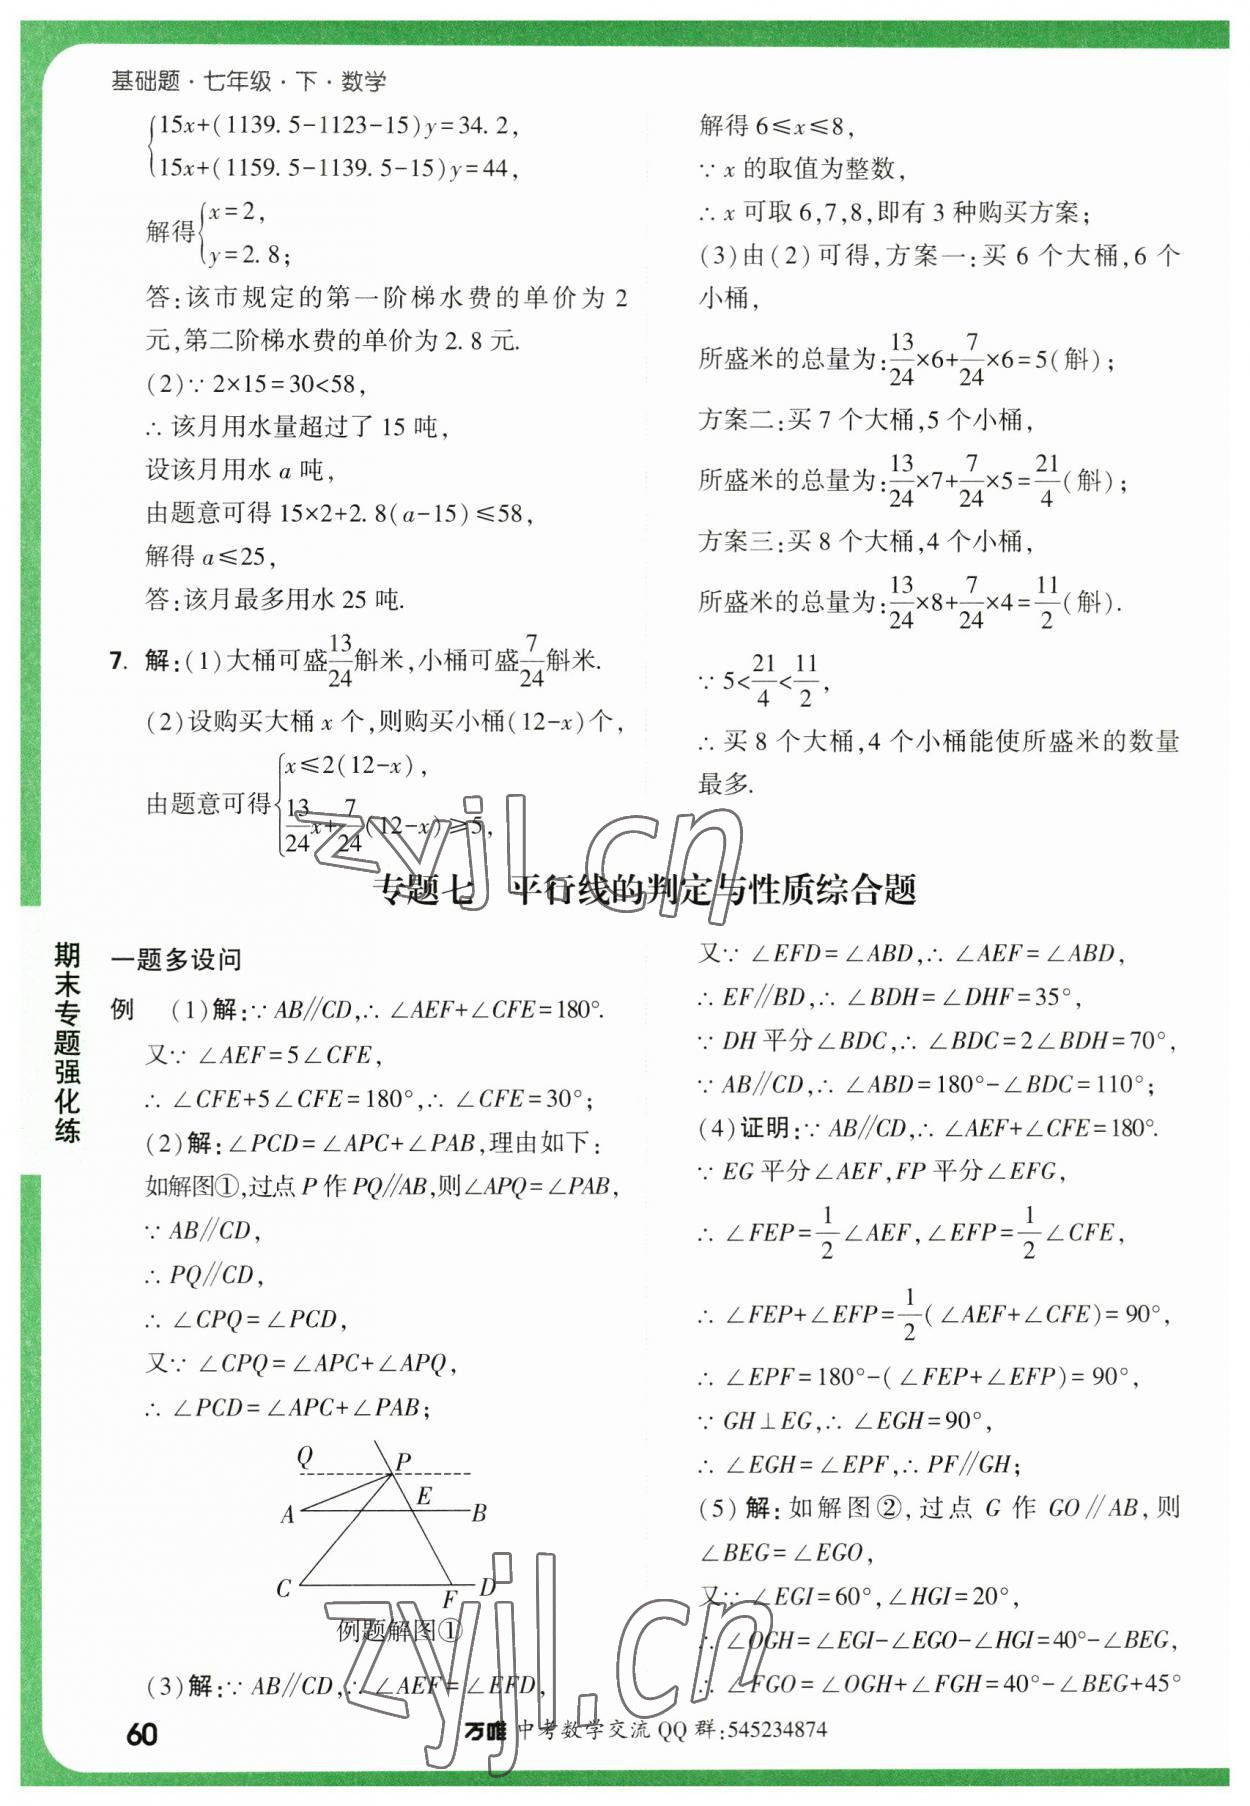 基础题·七年级·下·数学
{15x+(1139.5-1123-15)y=34.2,
15x+(1159.5-1139.5-15)y=44,
解得{x=2,
y=2.8;
答:该市规定的第一阶梯水费的单价为 2
元,第二阶梯水费的单价为2.8元.
(2)∵ 2×15=30<58,
∴ 该月用水量超过了 15 吨,
设该月用水 a 吨,
由题意可得 15×2+2.8(a-15)≤58,
解得 a≤25,
答:该月最多用水 25 吨.
7. 解:(1)大桶可盛13/24斛米,小桶可盛7/24斛米.
(2)设购买大桶 x 个,则购买小桶(12-x)个,
由题意可得{x≤2(12-x),
13/24x+7/24(12-x)≥5,
解得 6≤x≤8,
∵ x 的取值为整数,
∴ x 可取 6,7,8,即有 3 种购买方案;
(3)由(2)可得,方案一:买 6 个大桶,6 个
小桶,
所盛米的总量为:13/24×6+7/24×6=5(斛);
方案二:买 7 个大桶,5 个小桶,
所盛米的总量为:13/24×7+7/24×5=21/4(斛);
方案三:买 8 个大桶,4 个小桶,
所盛米的总量为:13/24×8+7/24×4=11/2(斛).
∵ 5<21/4<11/2,
∴ 买 8 个大桶,4 个小桶能使所盛米的数量
最多.
zyjl.cn
专题七 平行线的判定与性质综合题
期末专题强化练
一题多设问
例 (1)解:∵ AB∥CD,∴ ∠AEF+∠CFE=180°.
又∵ ∠AEF=5∠CFE,
∴ ∠CFE+5∠CFE=180°,∴ ∠CFE=30°;
(2)解:∠PCD=∠APC+∠PAB,理由如下:
如解图①,过点 P 作 PQ∥AB,则∠APQ=∠PAB,
∵ AB∥CD,
∴ PQ∥CD,
∴ ∠CPQ=∠PCD,
又∵ ∠CPQ=∠APC+∠APQ,
∴ ∠PCD=∠APC+∠PAB;
Q P
A E B
C F D
例题解图①
(3)解:∵ AB∥CD,∴ ∠AEF=∠EFD,
又∵ ∠EFD=∠ABD,∴ ∠AEF=∠ABD,
∴ EF∥BD,∴ ∠BDH=∠DHF=35°,
∵ DH 平分∠BDC,∴ ∠BDC=2∠BDH=70°,
∵ AB∥CD,∴ ∠ABD=180°-∠BDC=110°;
(4)证明:∵ AB∥CD,∴ ∠AEF+∠CFE=180°.
∵ EG 平分∠AEF,FP 平分∠EFG,
∴ ∠FEP=1/2∠AEF,∠EFP=1/2∠CFE,
∴ ∠FEP+∠EFP=1/2(∠AEF+∠CFE)=90°,
∴ ∠EPF=180°-(∠FEP+∠EFP)=90°,
∵ GH⊥EG,∴ ∠EGH=90°,
∴ ∠EGH=∠EPF,∴ PF∥GH;
(5)解:如解图②,过点 G 作 GO∥AB,则
∠BEG=∠EGO,
又∵ ∠EGI=60°,∠HGI=20°,
∴ ∠OGH=∠EGI-∠EGO-∠HGI=40°-∠BEG,
∴ ∠FGO=∠OGH+∠FGH=40°-∠BEG+45°
zyjl.cn
60
万唯 中考数学交流 QQ 群:545234874